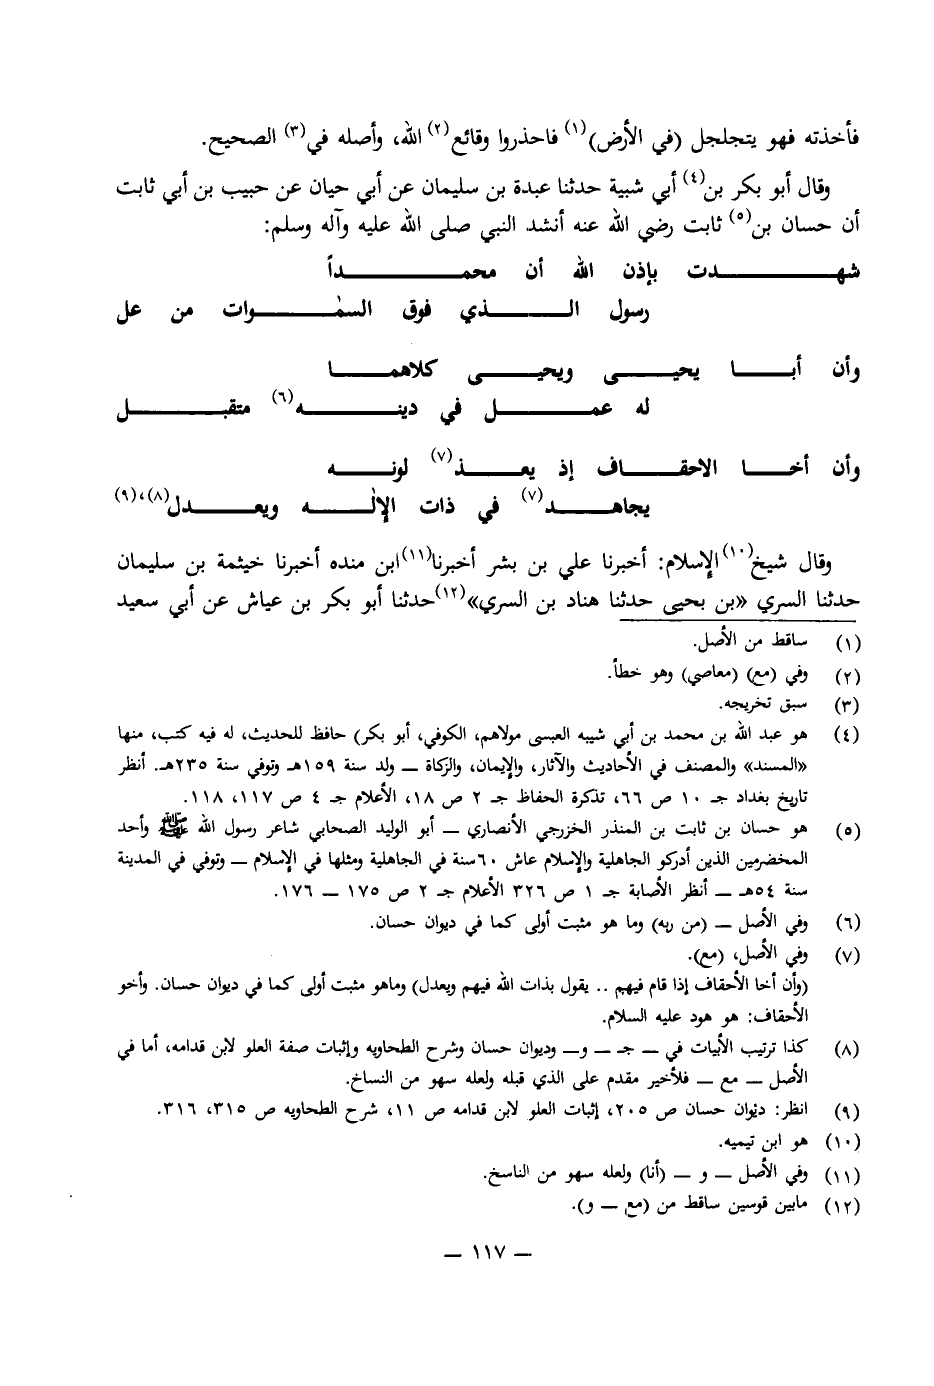 فأخذته فهو يتجلجل (في الأرض)(١) فاحذروا وقائع(٢) الله، وأصله في(٣) الصحيح.
وقال أبو بكر بن(٤) أبي شيبة حدثنا عبدة بن سليمان عن أبي حيان عن حبيب بن أبي ثابت
أن حسان بن(٥) ثابت رضي الله عنه أنشد النبي صلى الله عليه وآله وسلم:
شهدت بإذن الله أن محمداً
رسول الذي فوق السمٰوات من عل
وأن أبا يحيى ويحيى كلاهما
له عمل في دينه(٦) متقبل
وأن أخا الاحقاف إذ يعذ(٧) لونه
يجاهد(٧) في ذات الإلٰه ويعدل(٨)،(٩)
وقال شيخ(١٠) الإسلام: أخبرنا علي بن بشر أخبرنا(١١) ابن منده أخبرنا خيثمة بن سليمان
حدثنا السري «بن بحيى حدثنا هناد بن السري»(١٢) حدثنا أبو بكر بن عياش عن أبي سعيد
(١) ساقط من الأصل.
(٢) وفي (مع) (معاصي) وهو خطأ.
(٣) سبق تخريجه.
(٤) هو عبد الله بن محمد بن أبي شيبه العبسى مولاهم، الكوفي، أبو بكر) حافظ للحديث، له فيه كتب، منها
«المسند» والمصنف في الأحاديث والآثار، والإيمان، والزكاة ــ ولد سنة ١٥٩هـ وتوفي سنة ٢٣٥هـ. أنظر
تاريخ بغداد جـ ١٠ ص ٦٦، تذكرة الحفاظ جـ ٢ ص ١٨، الأعلام جـ ٤ ص ١١٧، ١١٨.
(٥) هو حسان بن ثابت بن المنذر الخزرجي الأنصاري ــ أبو الوليد الصحابي شاعر رسول الله ﷺ وأحد
المخضرمين الذين أدركو الجاهلية والإسلام عاش ٦٠سنة في الجاهلية ومثلها في الإسلام ــ وتوفي في المدينة
سنة ٥٤هـ ــ أنظر الأصابة جـ ١ ص ٣٢٦ الأعلام جـ ٢ ص ١٧٥ ــ ١٧٦.
(٦) وفي الأصل ــ (من ربه) وما هو مثبت أولى كما في ديوان حسان.
(٧) وفي الأصل، (مع).
(وأن أخا الأحقاف إذا قام فيهم .. يقول بذات الله فيهم ويعدل) وماهو مثبت أولى كما في ديوان حسان. وأخو
الأحقاف: هو هود عليه السلام.
(٨) كذا ترتيب الأبيات في ــ جـ ــ و ــ وديوان حسان وشرح الطحاويه وإثبات صفة العلو لابن قدامه، أما في
الأصل ــ مع ــ فلأخير مقدم على الذي قبله ولعله سهو من النساخ.
(٩) انظر: ديوان حسان ص ٢٠٥، إثبات العلو لابن قدامه ص ١١، شرح الطحاويه ص ٣١٥، ٣١٦.
(١٠) هو ابن تيميه.
(١١) وفي الأصل ــ و ــ (أنا) ولعله سهو من الناسخ.
(١٢) مابين قوسين ساقط من (مع ــ و).
ــ ١١٧ ــ